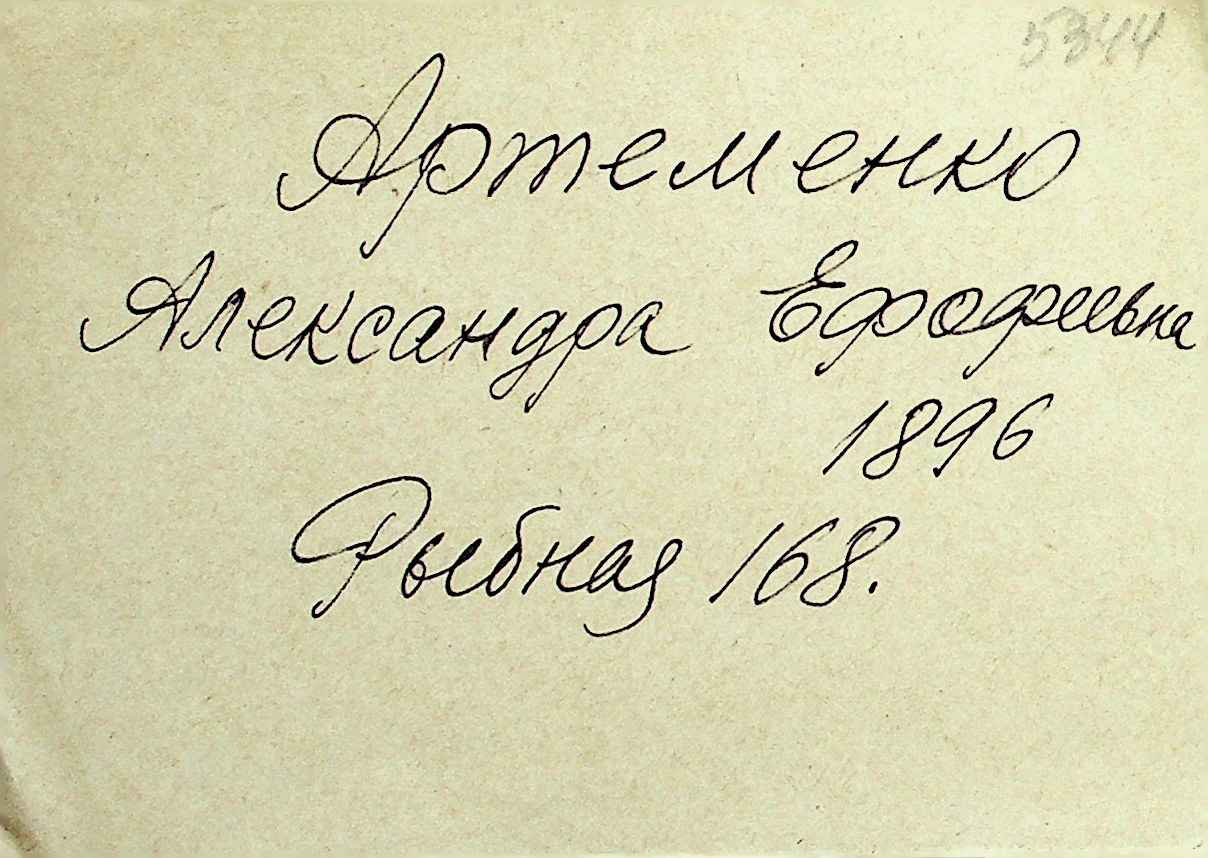 5344
Артеменко
Александра
1896
Рыбная 168.